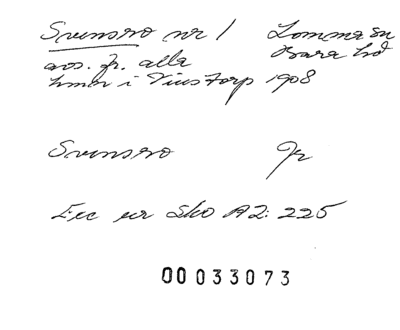 Svensro nr 1 Lomma sn
avs. fr. alla Bara hd
hmn i Vinstorp 1908
Svensro Gr
Exc ur Sko A2: 225
00033073